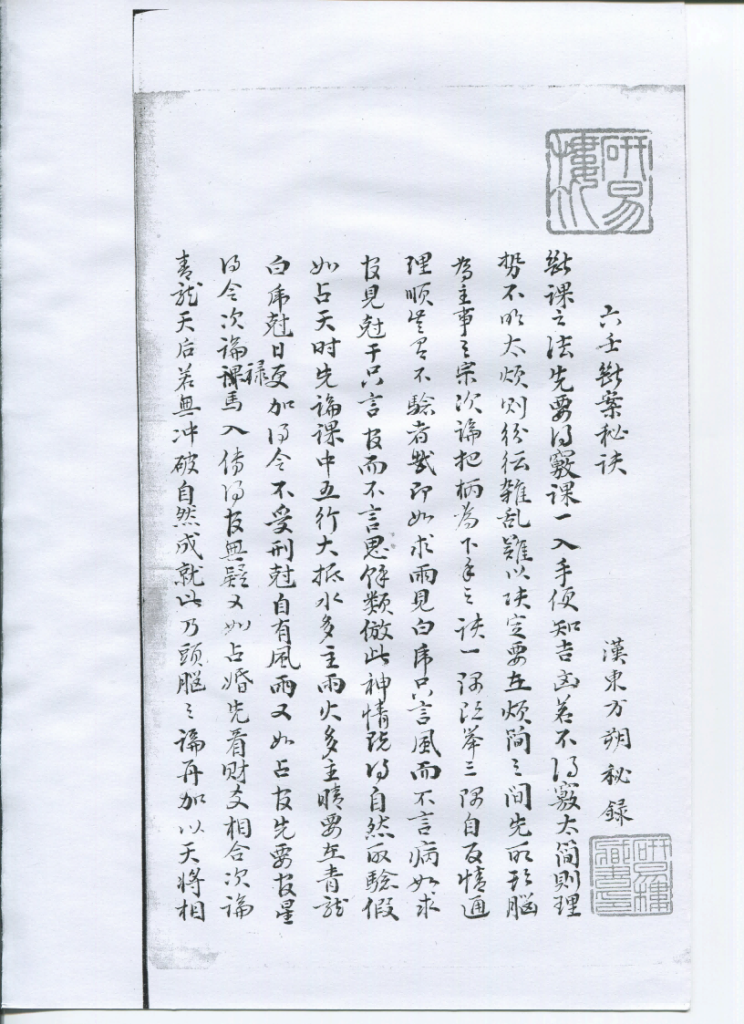 六壬斷案秘訣
漢東方朔秘録
斷課之法先要得竅課一入手便知吉凶若不得竅太簡則理
勢不明太煩則紛紜雜乱難以决定要在煩簡之間先取頭腦
為主事之宗次論把柄為下手之訣一隅既举三隅自反情通
理顺豈有不驗者哉即如求雨見白虎只言風而不言病如求
官見尅干只言官而不言鬼餘類倣此神情既得自然取驗假
如占天时先論課中五行大抵水多主雨火多主晴要在青龍
白虎尅日更加得令不受刑尅自有風雨又如占官先要官星
得令次論禄馬入傳得官無疑又如占婚先看財爻相合次論
青龍天后若無冲破自然成就此乃頭腦之論再加以天将相